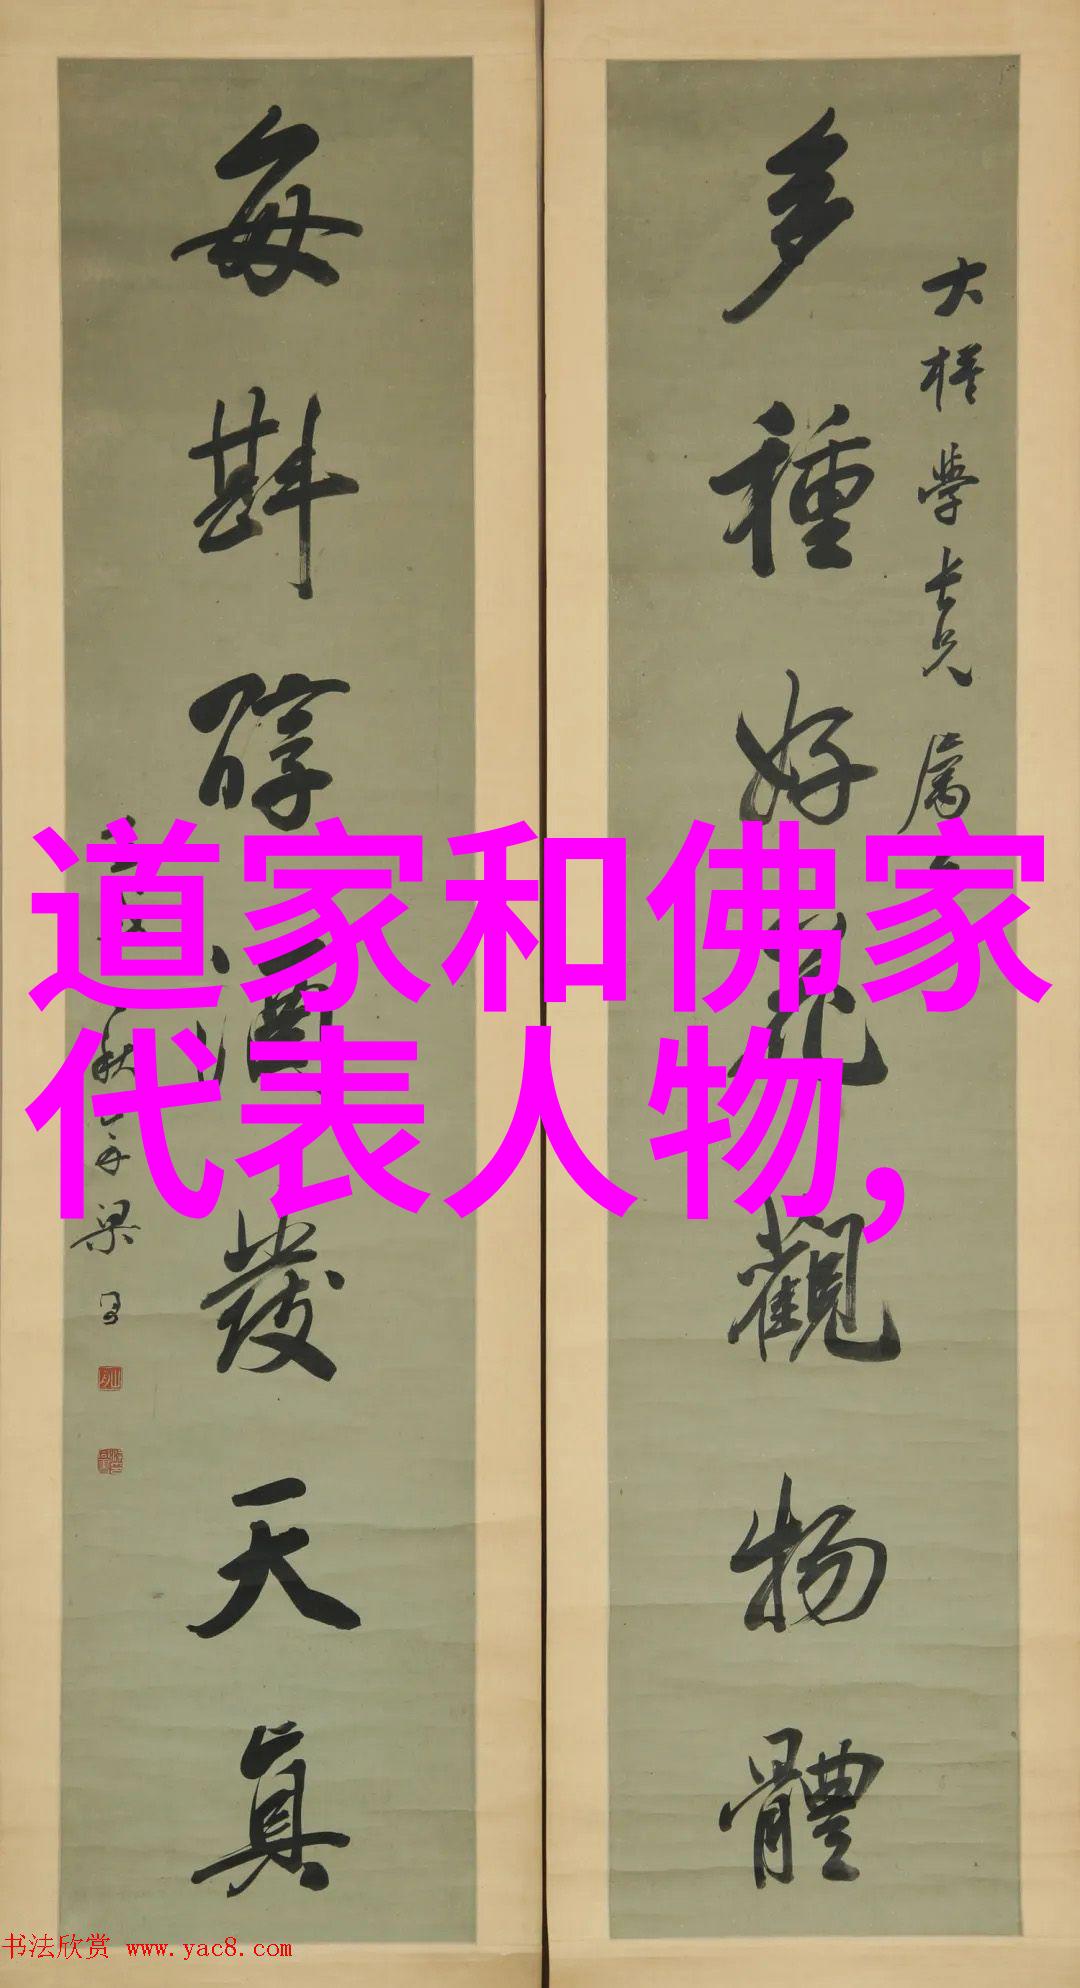 大樣學長兄屬
多種好花觀物體
每斟醇酒發天真
秋
梁
道家和佛家
代表人物,
书法欣赏 www.yac8.com